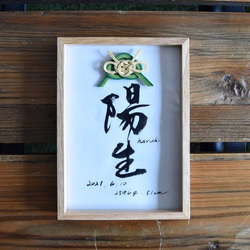 陽生
haruki
2021. 6. 10
2596g 51cm